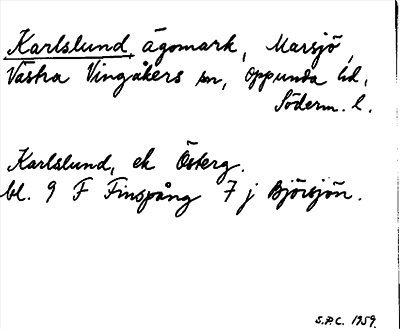 Karlslund, ägomark, Marsjö,
Västra Vingåkers sn, Oppunda hd,
Söderm. l.
Karlslund, ek Österg.
bl. 9 F Finspång 7 j Björsjön.
S.P.C. 1959.